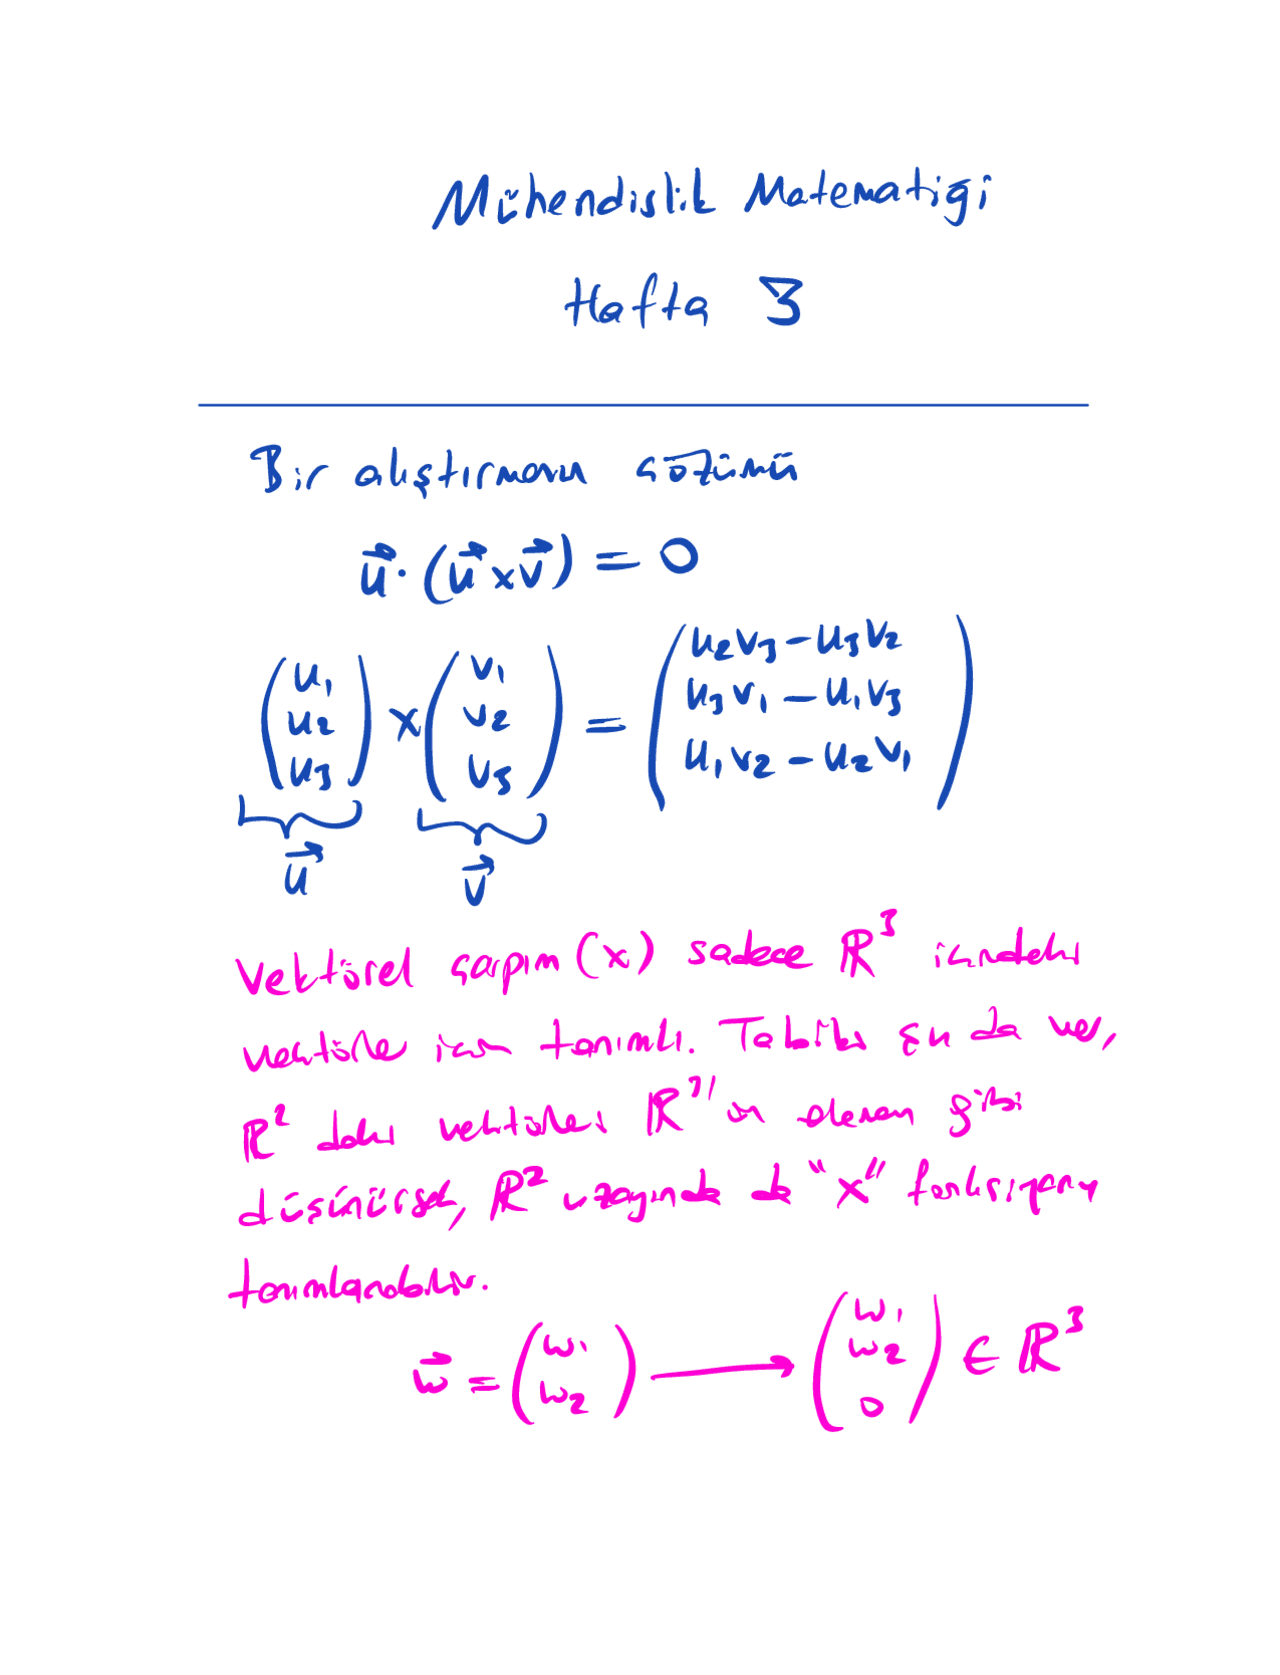 Mühendislik Matematiği
Hafta 3
Bir alıştırmanın çözümü
$\vec{u} \cdot (\vec{u} \times \vec{v}) = 0$
$\underbrace{\begin{pmatrix} u_1 \\ u_2 \\ u_3 \end{pmatrix}}_{\vec{u}} \times \underbrace{\begin{pmatrix} v_1 \\ v_2 \\ v_3 \end{pmatrix}}_{\vec{v}} = \begin{pmatrix} u_2v_3 - u_3v_2 \\ u_3v_1 - u_1v_3 \\ u_1v_2 - u_2v_1 \end{pmatrix}$
Vektörel çarpım (x) sadece ℝ³ içindeki
vektörler için tanımlı. Tabiki şu da var,
ℝ² deki vektörleri ℝ³'ün elemanı gibi
düşünürsek, ℝ² uzayında da "x" fonksiyonu
tanımlanabilir.
$\vec{w} = \begin{pmatrix} w_1 \\ w_2 \end{pmatrix} \longrightarrow \begin{pmatrix} w_1 \\ w_2 \\ 0 \end{pmatrix} \in ℝ^3$